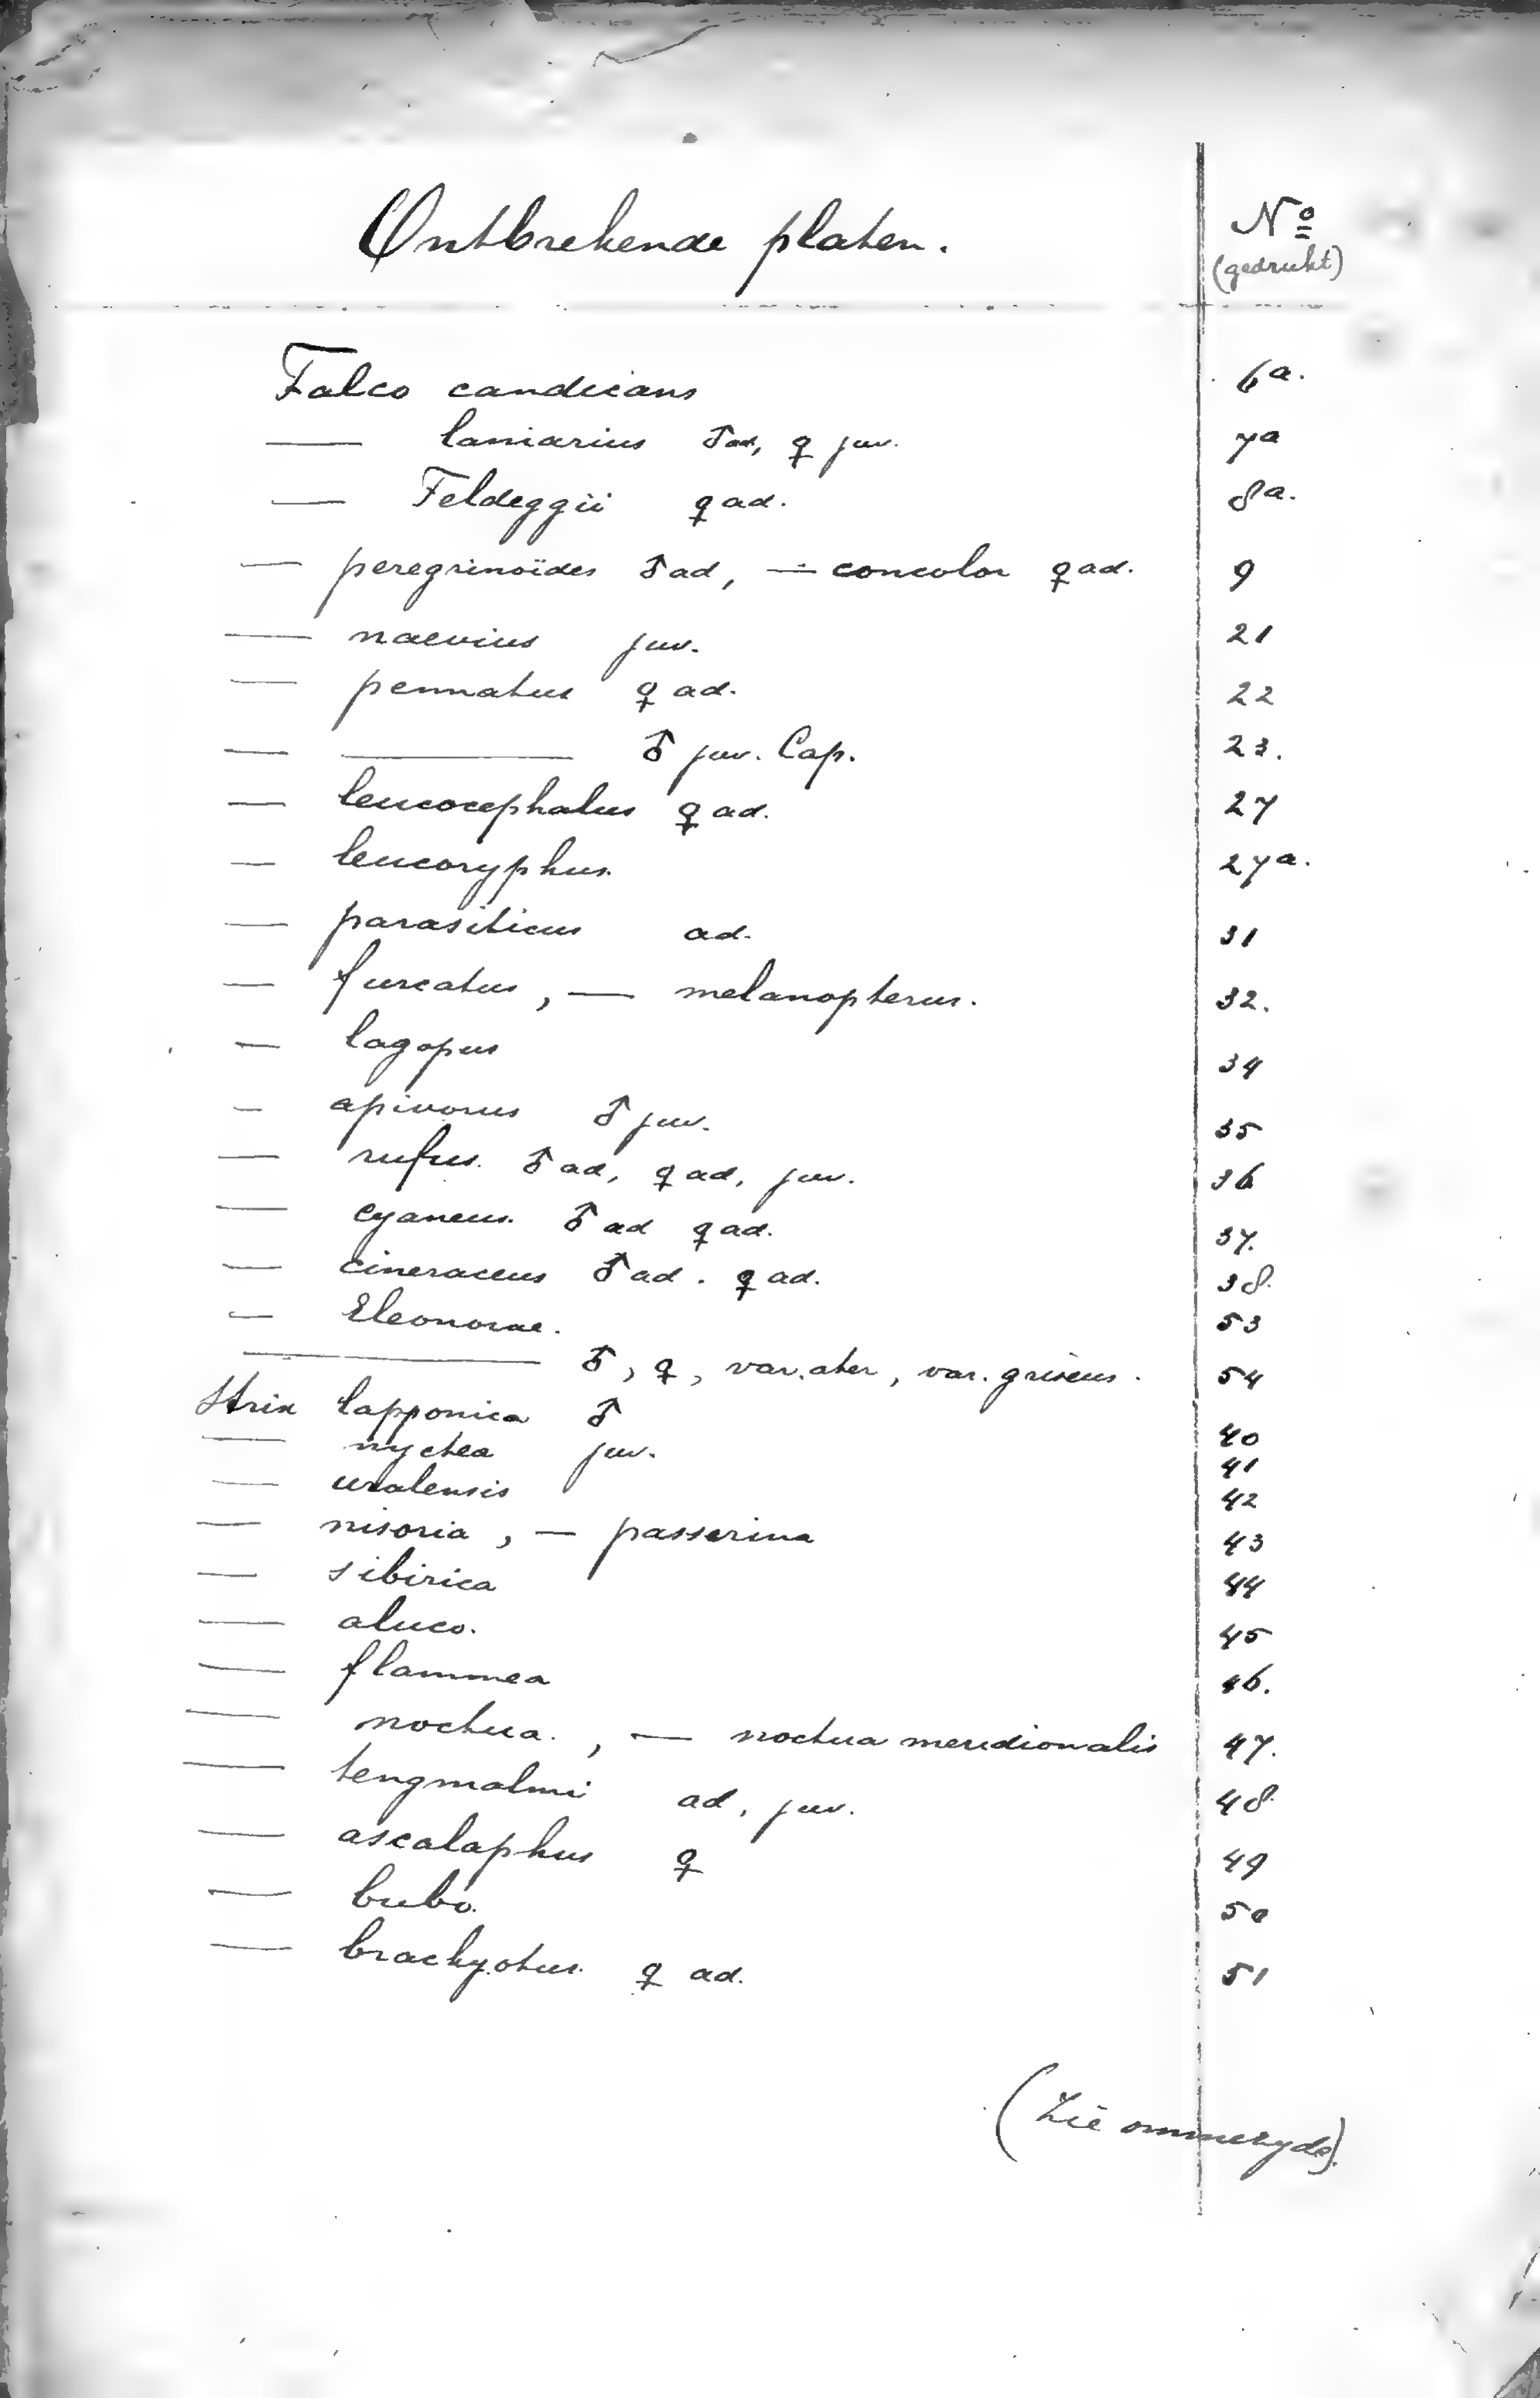 Ontbrekende platen. Nº
(gedrukt)
Falco candicans 6a.
— laniarius ♂ ad, ♀ juv. 7a
— Feldeggii ♀ ad. 8a.
— peregrinoïdes ♂ ad, — concolor ♀ ad. 9
— naevius juv. 21
— pennatus ♀ ad. 22
— — ♂ juv. Cap. 23.
— leucocephalus ♀ ad. 27
— leucoryphus. 27a.
— parasiticus ad. 31
— furcatus, — melanopterus. 32.
— lagopus 34
— apivorus ♂ juv. 35
— rufus. ♂ ad, ♀ ad, juv. 36
— cyaneus. ♂ ad ♀ ad. 37.
— cineraceus ♂ ad. ♀ ad. 38.
— Eleonorae. 53
— ♂, ♀, var. ater, var. griseus. 54
Strix lapponica ♂ 40
— nyctea juv. 41
— uralensis 42
— nisoria, — passerina 43
— sibirica 44
— aluco. 45
— flammea 46.
— noctua., — noctua meridionalis 47.
— tengmalmi ad, juv. 48.
— ascalaphus ♀ 49
— bubo. 50
— brachyotus. ♀ ad. 51
(Zie ommezyde).